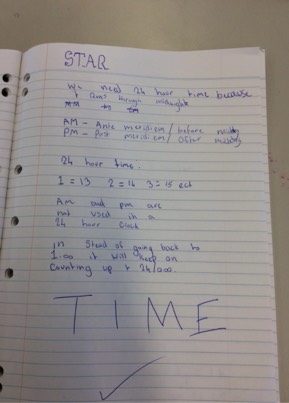 STAR
We need 24 hour time because
it goes through midnight
AM - Ante meridiem / before midday
PM - Post meridiem / after midday
24 hour time.
1 = 13 2 = 14 3 = 15 ect
Am and pm are
not used in a
24 hour clock
in stead of going back to
1.00 it will keep on
counting up to 24/000.
TIME